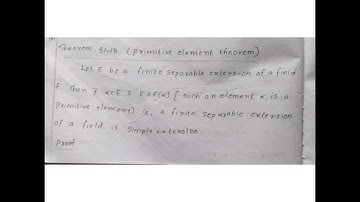 Theorem 51.15 (primitive element theorem)
Let E be a finite separable extension of a field
F. Then ∃ α∈E ∋ E=F(α) [such an element α is a
primitive element) ie, a finite separable extension
of a field is simple extension.
Proof